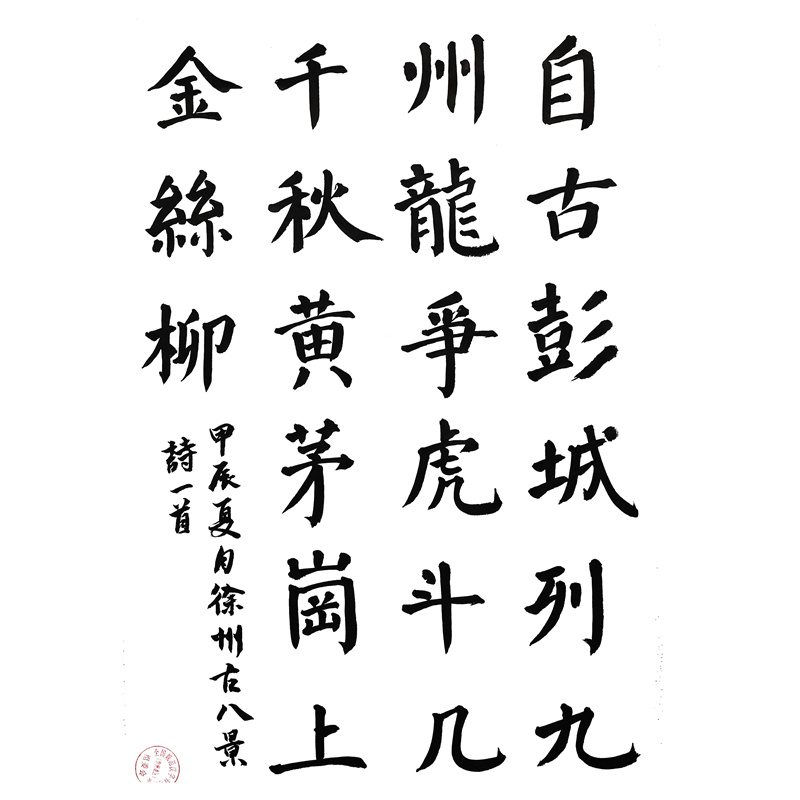 自古彭城列九
州龍爭虎斗几
千秋黄茅崗上
金絲柳
甲辰夏月徐州古八景
詩一首